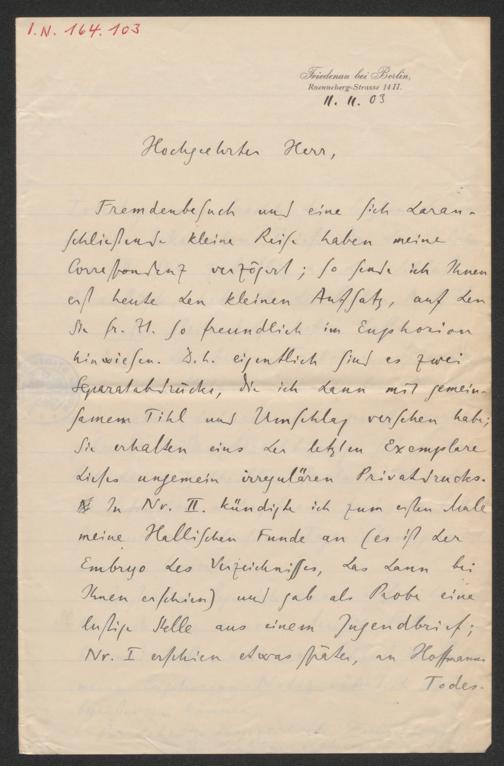 I.N. 164.103
Friedenau bei Berlin,
Roenneberg-Strasse 14 II.
11. 11. 03
Hochgeehrter Herr,
Fremdenbesuch und eine sich daran-
schließende kleine Reise haben meine
Correspondenz verzögert; so sende ich Ihnen
erst heute den kleinen Aufsatz, auf den
Sie fr. Zt. so freundlich im Euphorion
hinwiesen. D.h. eigentlich sind es zwei
Separatabdrucke, die ich dann mit gemein-
samem Titel und Umschlag versehen habe;
Sie erhalten eins der letzten Exemplare
dieses ungemein irregulären Privatdrucks.
In Nr. II. kündigte ich zum ersten Male
meine Hallischen Funde an (es ist der
Embryo des Verzeichnisses, das dann bei
Ihnen erschien) und gab als Probe eine
lustige Stelle aus einem Jugendbrief;
Nr. I erschien etwas später, an Hoffmanns
Todes-